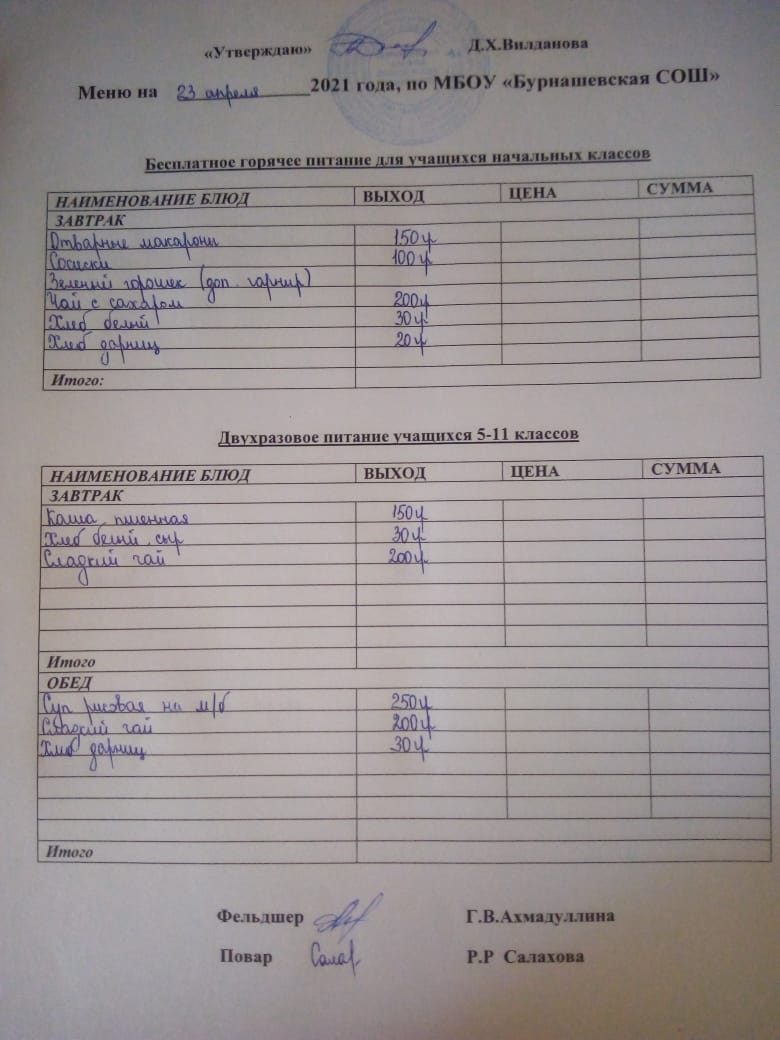 «Утверждаю» Д.Х.Вилданова
Меню на 23 апреля 2021 года, по МБОУ «Бурнашевская СОШ»
Бесплатное горячее питание для учащихся начальных классов
НАИМЕНОВАНИЕ БЛЮД ВЫХОД ЦЕНА СУММА
ЗАВТРАК
Отварные макарони 150 г
Сосиски 100 г
Зеленый горошек (доп. гарнир)
Чай с сахаром 200 г
Хлеб белый 30 г
Хлеб дарниц 20 г
Итого:
Двухразовое питание учащихся 5-11 классов
НАИМЕНОВАНИЕ БЛЮД ВЫХОД ЦЕНА СУММА
ЗАВТРАК
Каша пшенная 150 г
Хлеб белый, сыр 30 г
Сладкий чай 200 г
Итого
ОБЕД
Суп рисовая на м/б 250 г
Сладкий чай 200 г
Хлеб дарниц 30 г
Итого
Фельдшер Г.В.Ахмадуллина
Повар Салах Р.Р Салахова